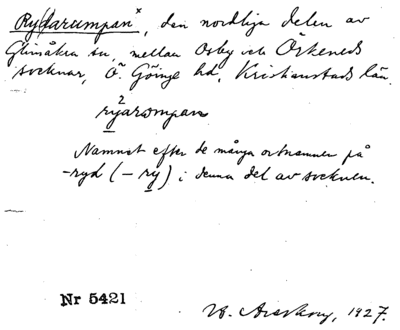 Rydarumpan×, den nordliga delen av
Glimåkra sn, mellan Osby och Örkeneds
socknar, Ö. Göinge hd, Kristianstads län.
2
ryarompan
Namnet efter de många ortnamnen på
-ryd (-ry) i denna del av socknen.
Nr 5421
1927.